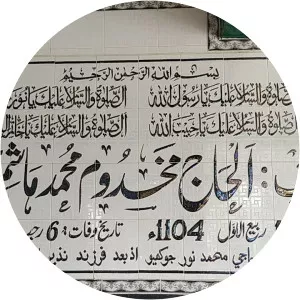 بسم الله الرحمن الرحيم
الصلوة والسلام عليك يا رسول الله الصلوة والسلام عليك يا نور
الصلوة والسلام عليك يا حبيب الله الصلوة والسلام عليك يا
الحاج مخدوم محمد هاشم
ربيع الاول 1104ء تاريخ وفات: 6 رجب
محمد نور جوکيو اڌ بعد فرزند نذير